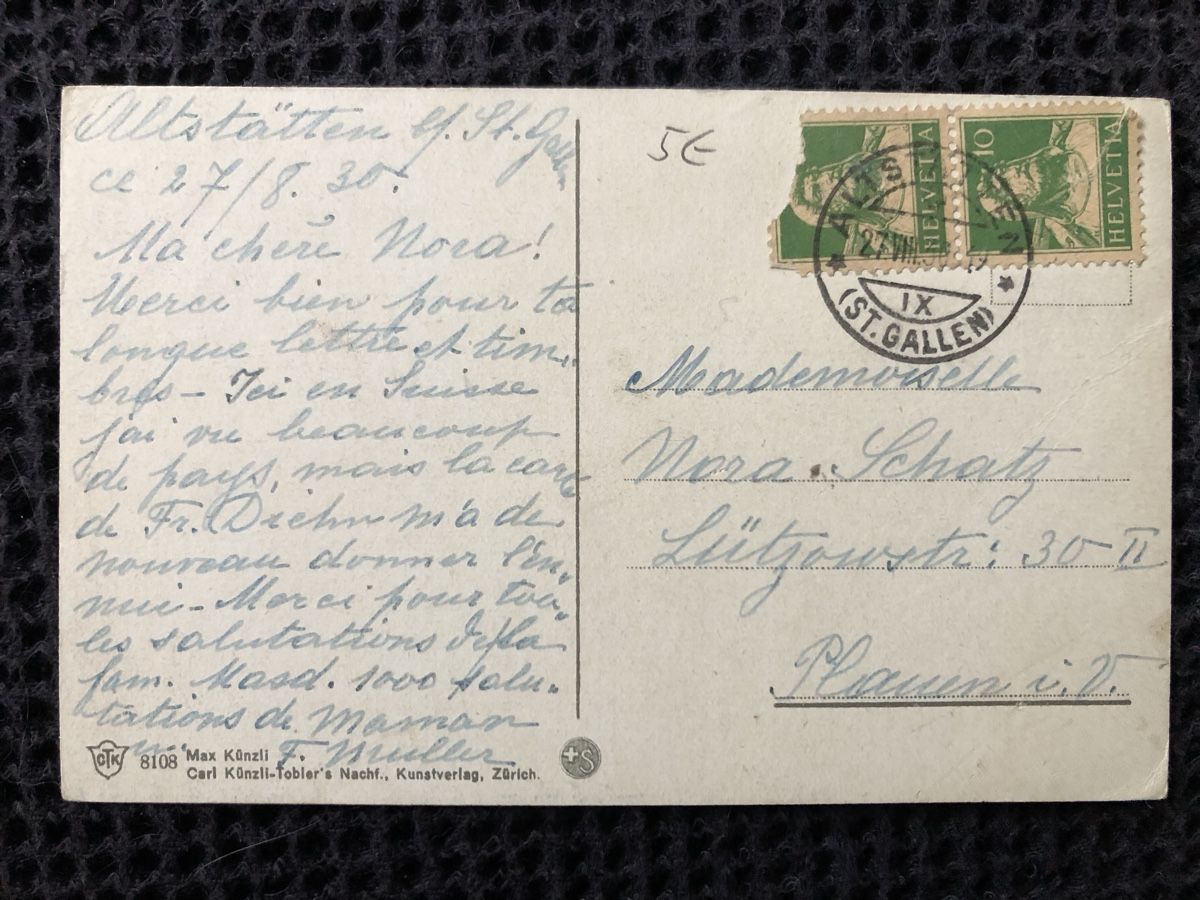 Altstätten b/. St. Gallen
ce 27/8. 30.
Ma chère Nora!
Merci bien pour ta
longue lettre et tim-
bres - Ici en Suisse
j'ai vu beaucoup
de pays, mais la care
de Fr. Diehn m'a de
nouveau donner l'en-
nui - Merci pour tou-
les salutations de la
fam. Masd. 1000 salu-
tations de Maman
u. F. Muller
CTK 8108 Max Künzli
Carl Künzli-Tobler's Nachf., Kunstverlag, Zürich.
+S
5€
HELVETIA
10 HELVETIA
ALTSTÄTTEN
27.VIII.30
IX
(ST. GALLEN)
Mademoiselle
Nora Schatz
Lützowstr. 30 II
Plauen i. V.